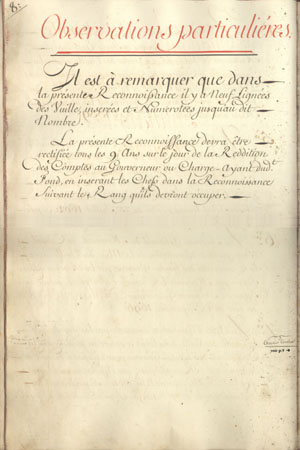 8.
Observations particuliéres.
Il est à remarquer que dans
la présente Reconnoissance il y a Neuf Lignées
des Vuille, inserées et Numerotées jusqu'au dit
Nombre.
La présente Reconnoissance devra être
rectifiée tous les 9 Ans sur le jour de la Reddition
des Comptes au Gouverneur ou Charge-Ayant dud.t
Fond, en inserant les Chefs dans la Reconnoissance
Suivant le Rang qu'ils devront occuper.